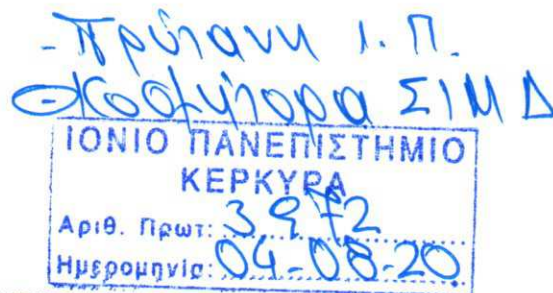 - Πρύτανη Ι.Π.
- Κοσμήτορα ΣΙΜΔ
ΙΟΝΙΟ ΠΑΝΕΠΙΣΤΗΜΙΟ
ΚΕΡΚΥΡΑ
Αριθ. Πρωτ: 3972
Ημερομηνία: 04-08-20